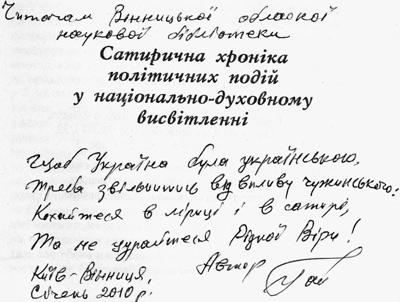 Читачам Вінницької обласної
наукової бібліотеки
Сатирична хроніка
політичних подій
у національно-духовному
висвітленні
Щоб Україна була українською,
Треба звільнитись від впливу чужинського:
Кохайтеся в ліриці і в сатирі,
Та не цурайтеся Рідної Віри!
Київ-Вінниця, Автор
Січень 2010 р.